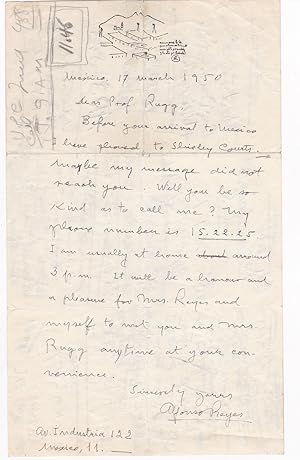 11046
9 A.M.
Mexico, 17 march 1950
Dear Prof. Rugg:
Before your arrival to Mexico
I have phoned, to Shirley Courts.
Maybe my message did not
reach you. Will you be so
kind as to call me? My
phone number is 15.22.25
I am usually at home around
3 p.m. It will be a honour and
a pleasure for Mrs. Reyes and
myself to meet you and Mrs.
Rugg anytime at your con-
venience.
Sincerely yours
Alfonso Reyes
Av. Industria 122
Mexico, 11. —